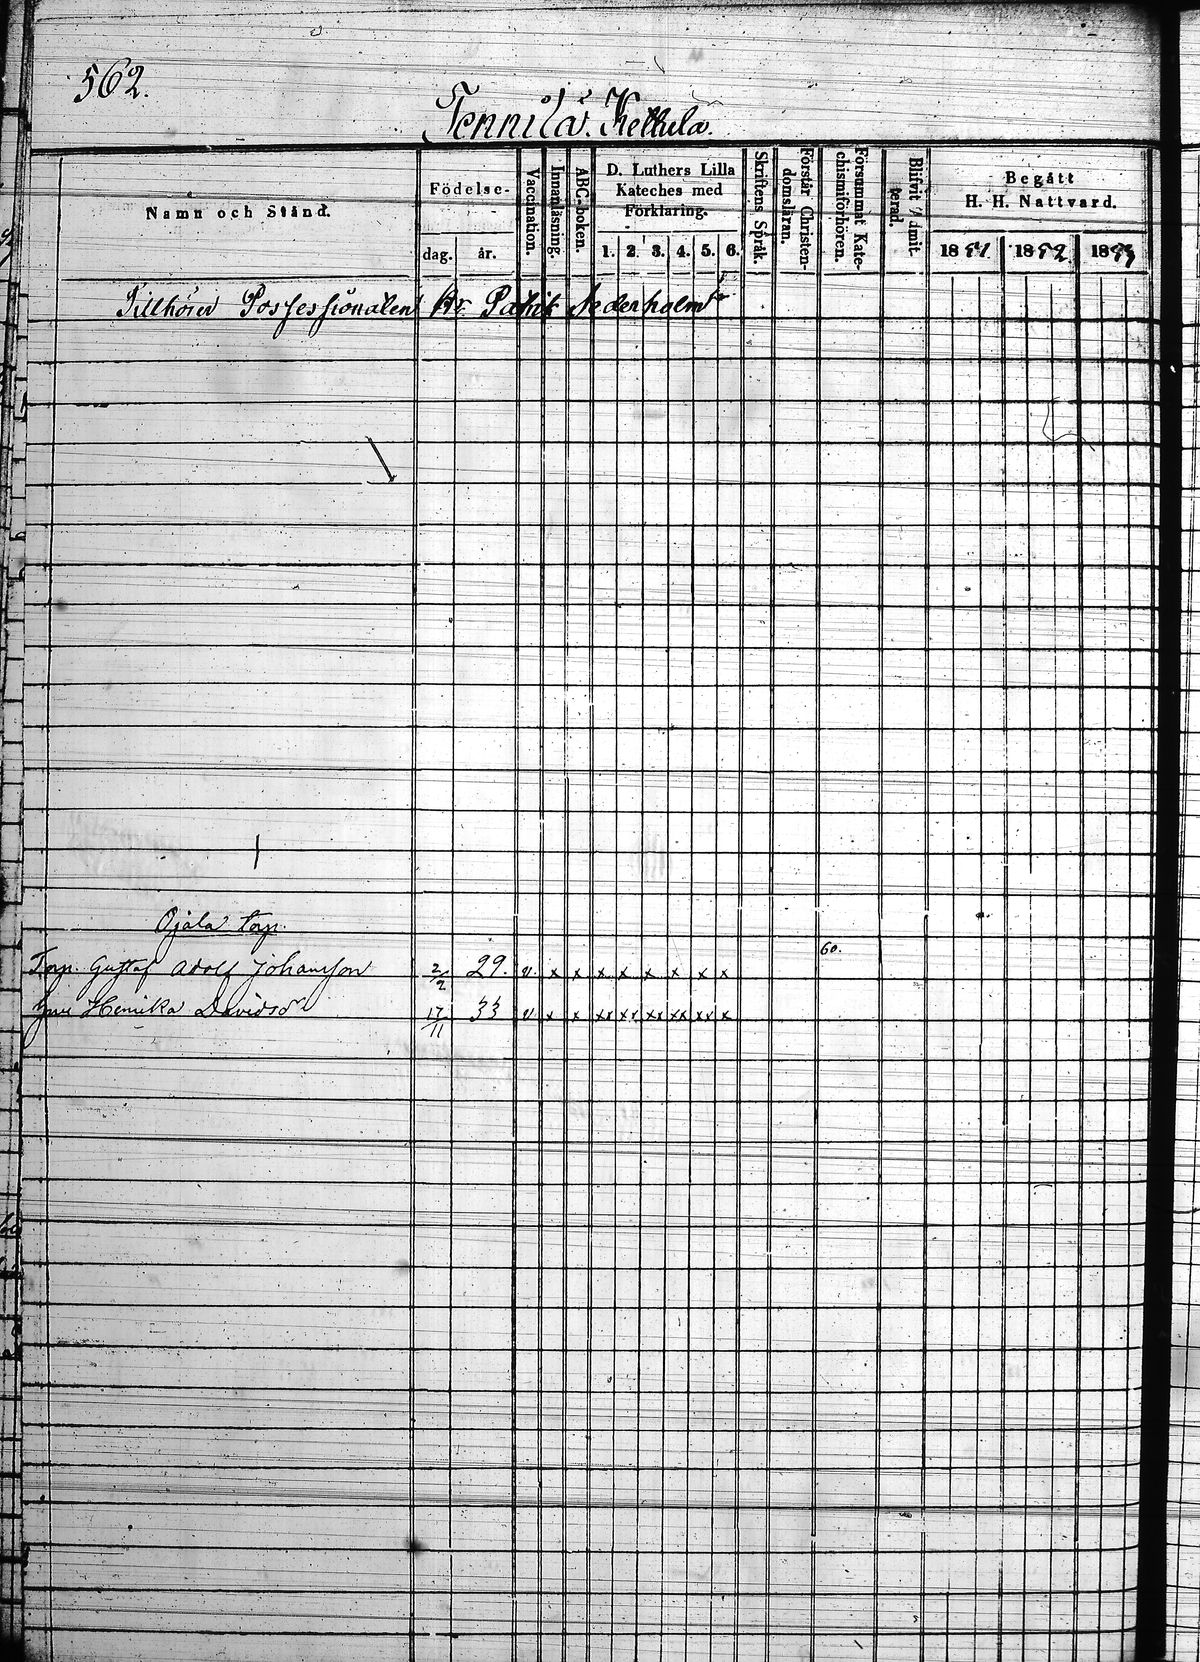 562.
Tennilä. Kettula.
Namn och Stånd.
Födelse-
dag. år.
Vaccination.
Innanläsning.
ABC-boken.
D. Luthers Lilla
Kateches med
Förklaring.
1. 2. 3. 4. 5. 6.
Skriftens Språk.
Förstår Christen-
domsläran.
Försummat Kate-
chismiförhören.
Blifvit Admit-
terad.
Begått
H. H. Nattvard.
1851. 1852. 1853
Tillhörer Possessionaten Hr Patrik Nederholm
Ojala torp.
60.
Torp. Gustaf Adolf Johansson 2/2 29. v. x x x x x x x x
Henrika Davidsdr 17/11 33 v x x xx xx xx xx xx x